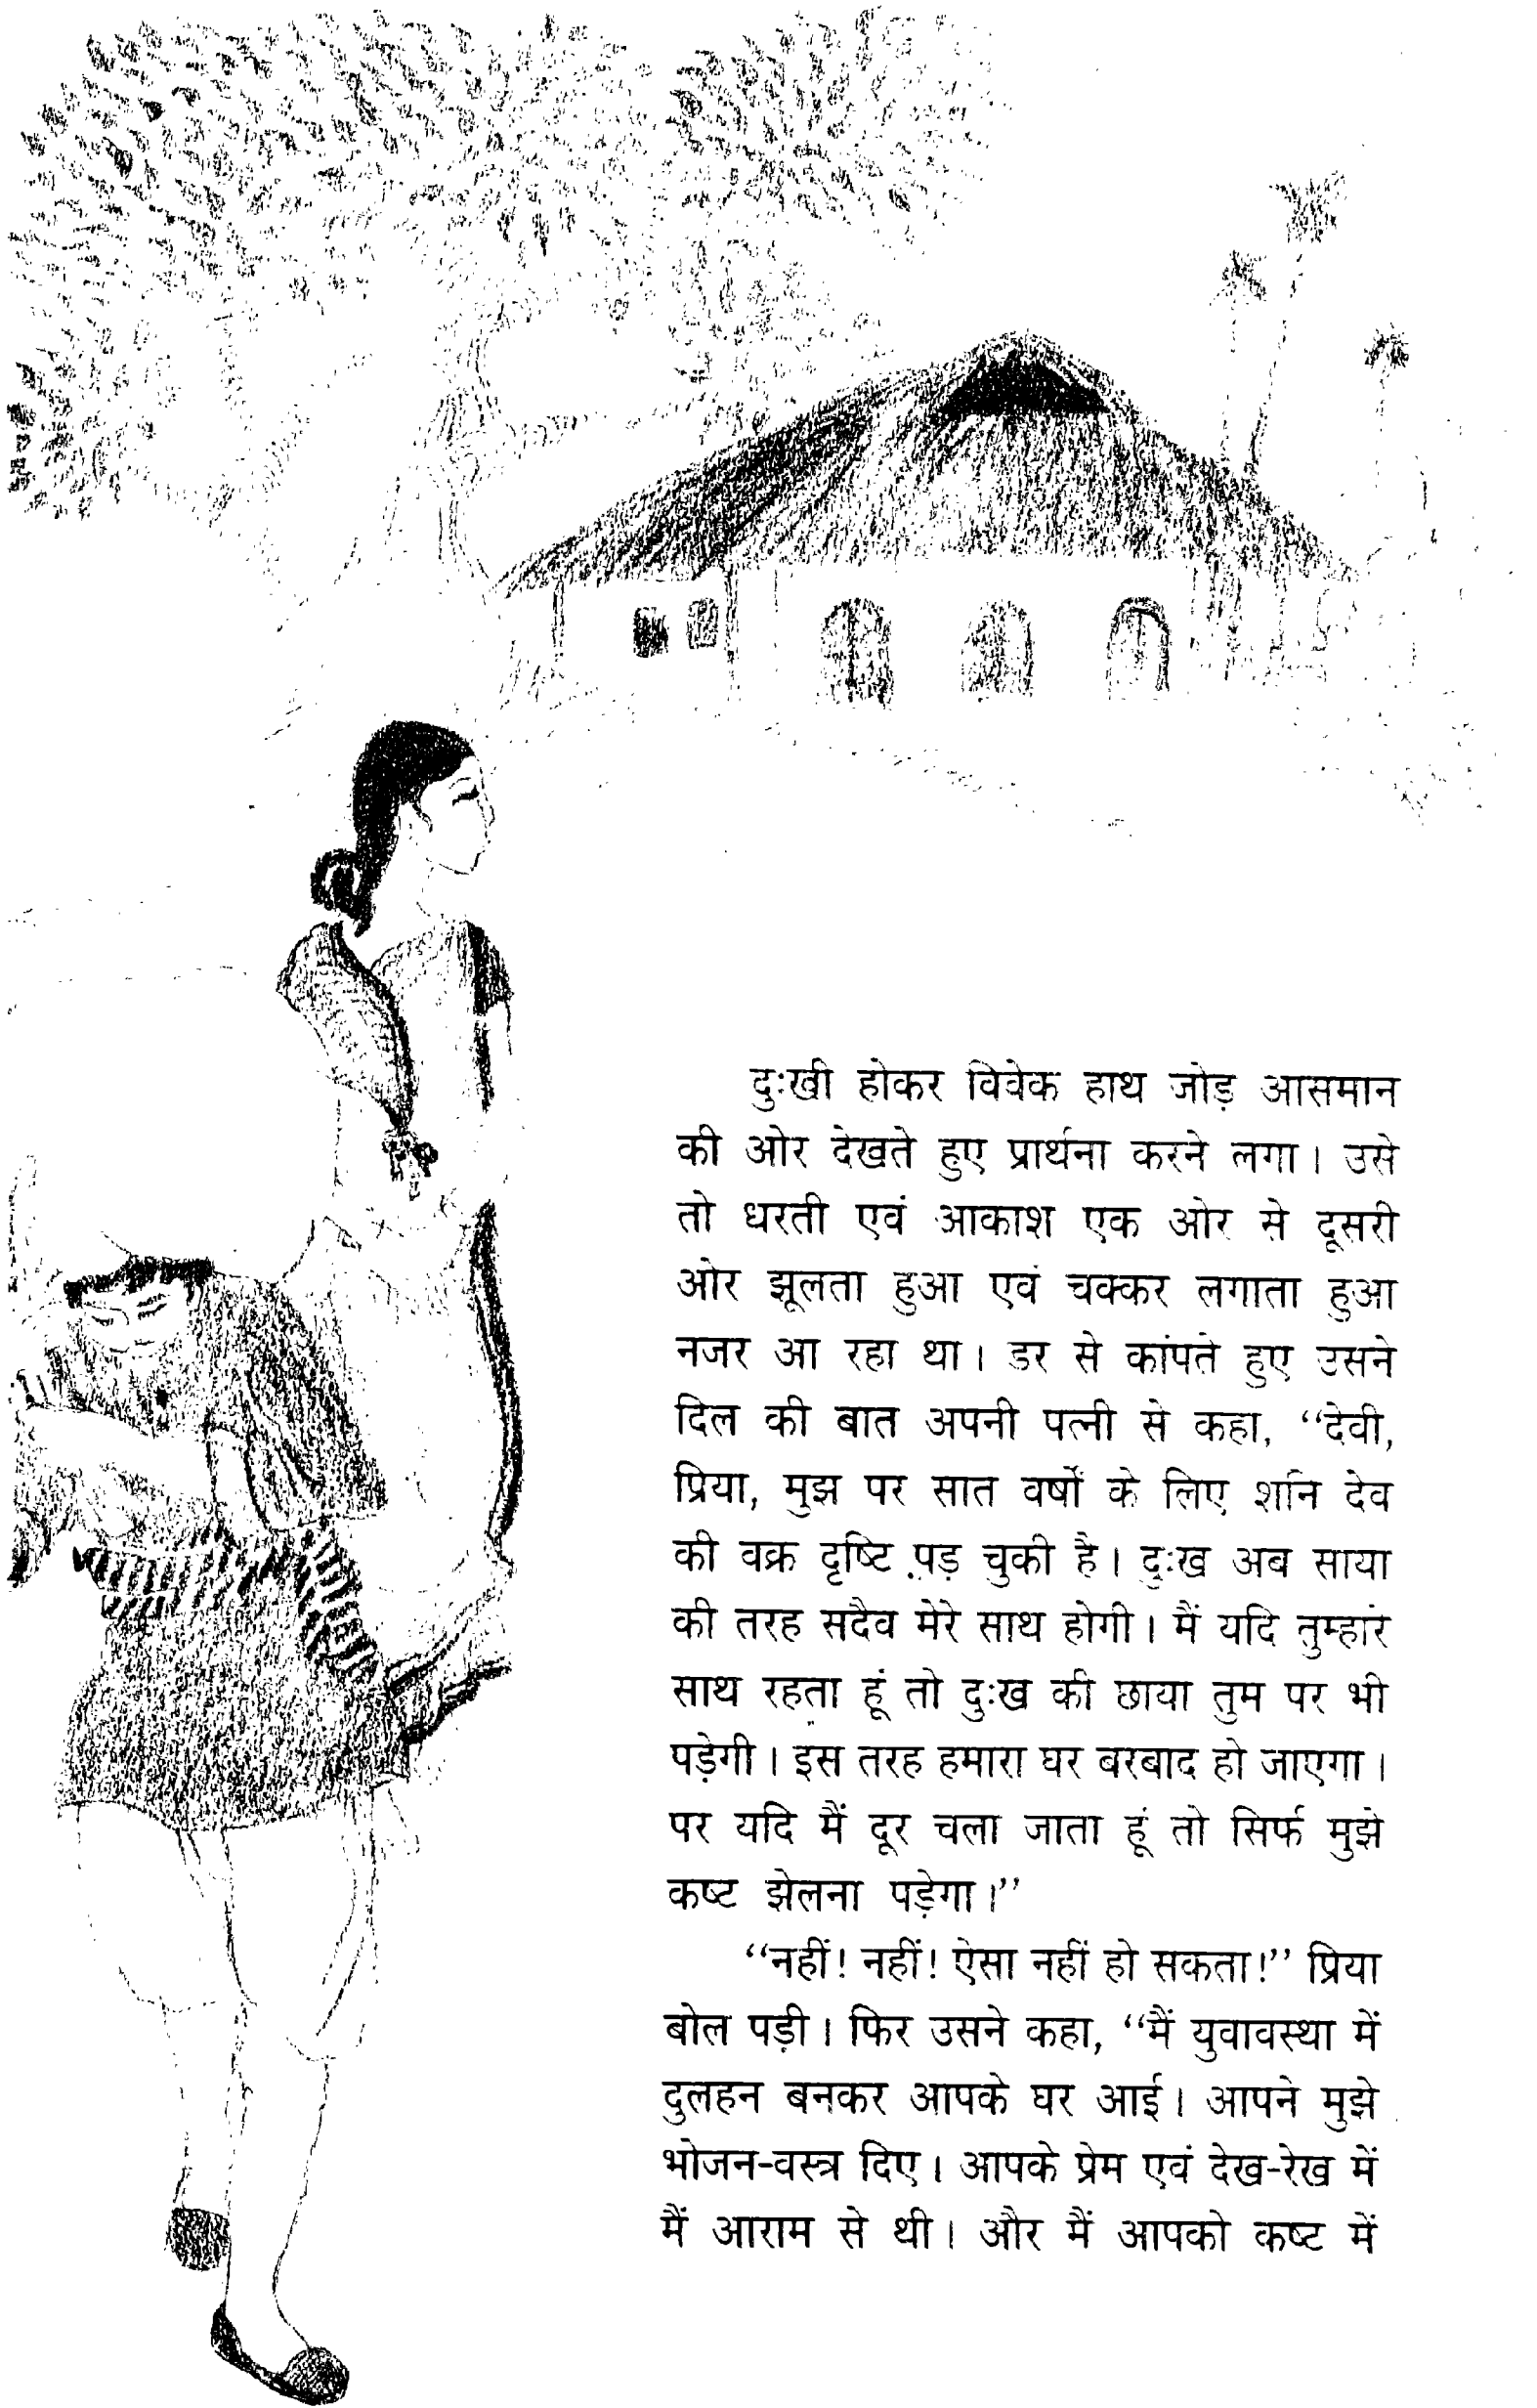 दुःखी होकर विवेक हाथ जोड़ आसमान
की ओर देखते हुए प्रार्थना करने लगा। उसे
तो धरती एवं आकाश एक ओर से दूसरी
ओर झूलता हुआ एवं चक्कर लगाता हुआ
नजर आ रहा था। डर से कांपते हुए उसने
दिल की बात अपनी पत्नी से कहा, “देवी,
प्रिया, मुझ पर सात वर्षों के लिए शनि देव
की वक्र दृष्टि पड़ चुकी है। दुःख अब साया
की तरह सदैव मेरे साथ होगी। मैं यदि तुम्हारे
साथ रहता हूं तो दुःख की छाया तुम पर भी
पड़ेगी। इस तरह हमारा घर बरबाद हो जाएगा।
पर यदि मैं दूर चला जाता हूं तो सिर्फ मुझे
कष्ट झेलना पड़ेगा।”
“नहीं! नहीं! ऐसा नहीं हो सकता!” प्रिया
बोल पड़ी। फिर उसने कहा, “मैं युवावस्था में
दुलहन बनकर आपके घर आई। आपने मुझे
भोजन-वस्त्र दिए। आपके प्रेम एवं देख-रेख में
मैं आराम से थी। और मैं आपको कष्ट में